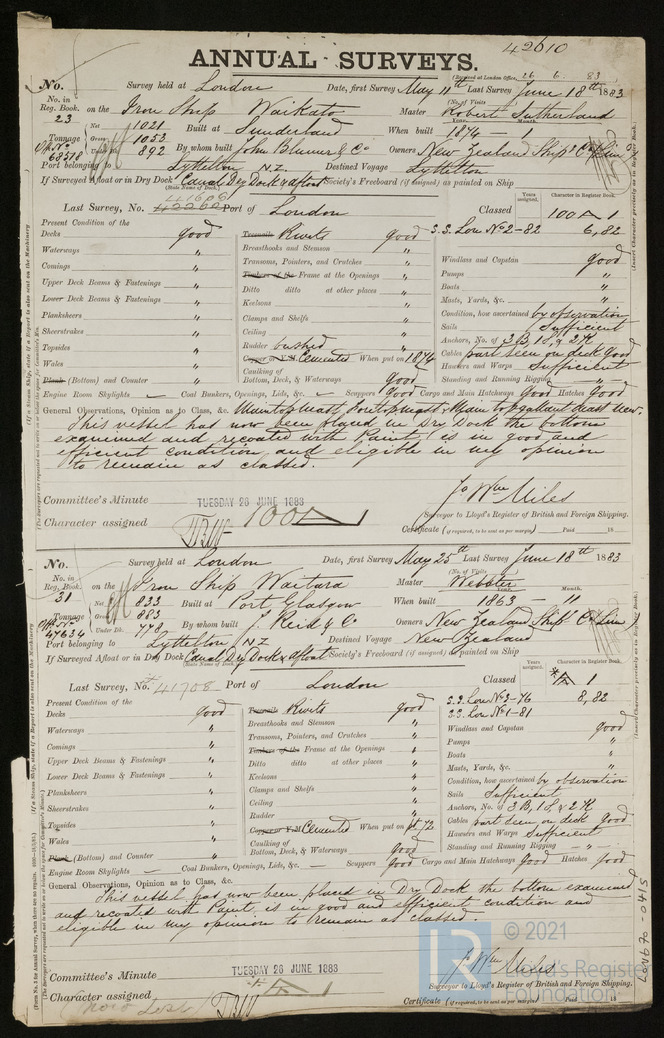 42610
ANNUAL SURVEYS.
(Received at London Office, 26. 6. 83)
No. Survey held at London Date, first Survey May 11th Last Survey June 18th 1883
No. in Reg. Book. 23 on the Iron Ship Waikato Master Robert Sutherland
(No. of Visits)
Tonnage Net 1021 Gross 1053 Under Dk. 892 Built at Sunderland When built 1874
Year. Month.
Off. No. 68518 By whom built John Blumer & Co Owners New Zealand Ship Co Lim
Port belonging to Lyttelton N.Z. Destined Voyage Lyttelton
If Surveyed Afloat or in Dry Dock Canal Dry Dock & afloat Society's Freeboard (if assigned) as painted on Ship
(State Name of Dock.)
Last Survey, No. 42262 41606 Port of London Classed 100 A 1
Years assigned. Character in Register Book.
S.S. Lon No 2-82 6,82
Present Condition of the
Decks good
Waterways "
Comings "
Upper Deck Beams & Fastenings "
Lower Deck Beams & Fastenings "
Planksheers "
Sheerstrakes "
Topsides "
Wales "
Plank (Bottom) and Counter "
Treenails Rivets good
Breasthooks and Stemson "
Transoms, Pointers, and Crutches "
Timbers of the Frame at the Openings "
Ditto ditto at other places "
Keelsons "
Clamps and Shelfs "
Ceiling "
Rudder bushed "
Copper or Y.M. Cemented When put on 1874
Caulking of Bottom, Deck, & Waterways Good
Windlass and Capstan good
Pumps "
Boats "
Masts, Yards, &c. "
Condition, how ascertained by observation
Sails Sufficient
Anchors, No. of 3 B, 1 S, & 2 K
Cables part seen on deck good
Hawsers and Warps Sufficient
Standing and Running Rigging - " -
Engine Room Skylights — Coal Bunkers, Openings, Lids, &c. — Scuppers Good Cargo and Main Hatchways Good Hatches Good
General Observations, Opinion as to Class, &c. Maintopmast, Foretopmast & Main topgallant mast new.
This vessel has now been placed in Dry Dock the bottom
examined and recoated with Paint, is in good and
efficient condition, and eligible in my opinion
to remain as classed.
Jo Wm Miles
Surveyor to Lloyd's Register of British and Foreign Shipping.
Committee's Minute TUESDAY 26 JUNE 1883
Character assigned 100 A 1
Certificate (if required, to be sent as per margin) Paid 18
No. Survey held at London Date, first Survey May 25th Last Survey June 18th 1883
No. in Reg. Book. 31 on the Iron Ship Waitara Master Webster
(No. of Visits)
Tonnage Net 833 Gross 883 Under Dk. Built at Port Glasgow When built 1863 - "
Year. Month.
Off. No. 47634 By whom built J. Reid & Co Owners New Zealand Ship Co Lim
Port belonging to Lyttelton NZ Destined Voyage New Zealand
If Surveyed Afloat or in Dry Dock Canal Dry Dock & afloat Society's Freeboard (if assigned) as painted on Ship
(State Name of Dock.)
Last Survey, No. 41708 Port of London Classed A 1
Years assigned. Character in Register Book.
S.S. Lon No 3-76 8,82
S.S. Lon No 1-81
Present Condition of the
Decks good
Waterways "
Comings "
Upper Deck Beams & Fastenings "
Lower Deck Beams & Fastenings "
Planksheers "
Sheerstrakes "
Topsides "
Wales "
Plank (Bottom) and Counter "
Treenails Rivets good
Breasthooks and Stemson "
Transoms, Pointers, and Crutches "
Timbers of the Frame at the Openings "
Ditto ditto at other places "
Keelsons "
Clamps and Shelfs "
Ceiling "
Rudder "
Copper or Y.M. Cemented When put on 72
Caulking of Bottom, Deck, & Waterways Good
Windlass and Capstan good
Pumps "
Boats "
Masts, Yards, &c. "
Condition, how ascertained by observation
Sails Sufficient
Anchors, No. of 3 B, 1 S, & 2 K
Cables part seen on deck good
Hawsers and Warps Sufficient
Standing and Running Rigging - " -
Engine Room Skylights — Coal Bunkers, Openings, Lids, &c. — Scuppers good Cargo and Main Hatchways good Hatches good
General Observations, Opinion as to Class, &c.
This vessel has now been placed in Dry Dock the bottom examined
and recoated with Paint, is in good and efficient condition and
eligible in my opinion to remain as classed.
Jo Wm Miles
Surveyor to Lloyd's Register of British and Foreign Shipping.
Committee's Minute TUESDAY 26 JUNE 1883
Character assigned A 1
Certificate (if required, to be sent as per margin) Paid 18
LON670-0415
© 2021
Lloyd's Register
Foundation